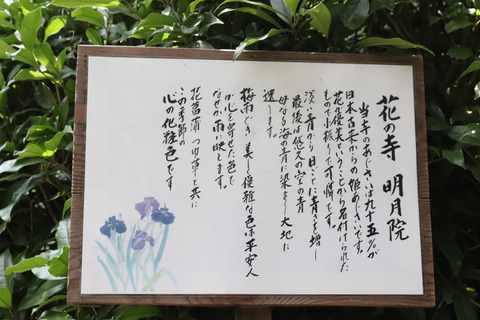 花の寺 明月院
当寺のあじさいは九十五％が
日本古来からの姫あじさいです。
花が優美ということから名付けられた
もので小振りで可憐です。
淡い青から日ごとに青さを増し
最後は悠久の空の青
母なる海の青に染まり大地に
還ります。
梅雨どき 美しく優雅な色は平安人
が心を寄せた色で
なぜか雨に映えます。
花菖蒲 つゆ草と共に
この季節の
心の化粧色です